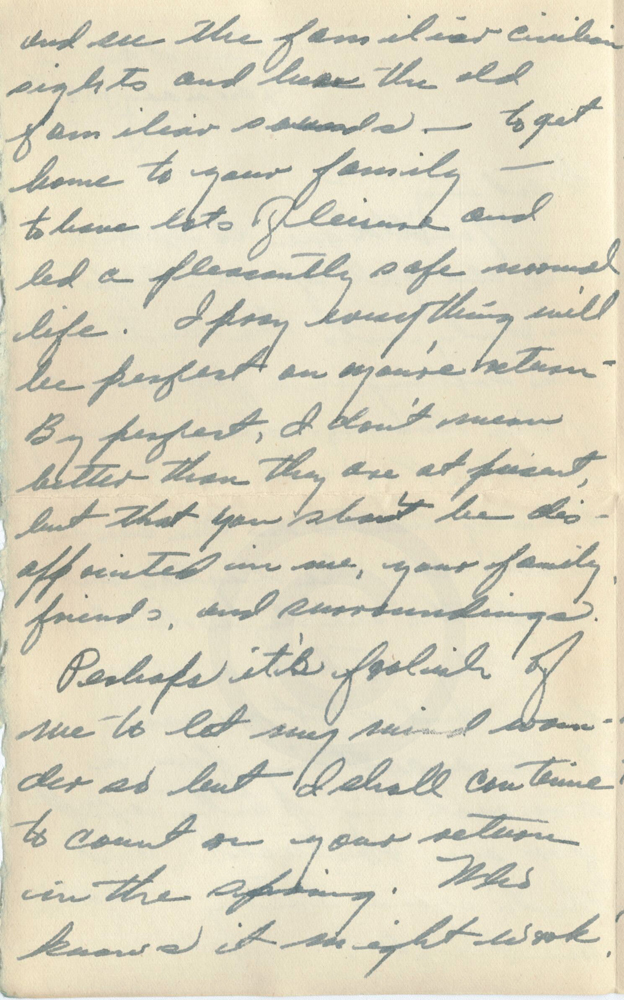 and see the familiar civilian
sights and hear the old
familiar sounds. — to get
home to your family —
to have lots of leisure and
led a pleasantly safe normal
life. I pray everything will
be perfect on you're return -
By perfect, I don't mean
better than they are at present,
but that you shan't be dis-
appointed in me, your family,
friends, and surroundings.
Perhaps it's foolish of
me to let my mind wan-
der so but I shall continue
to count on your return
in the spring. Who
knows it might work!